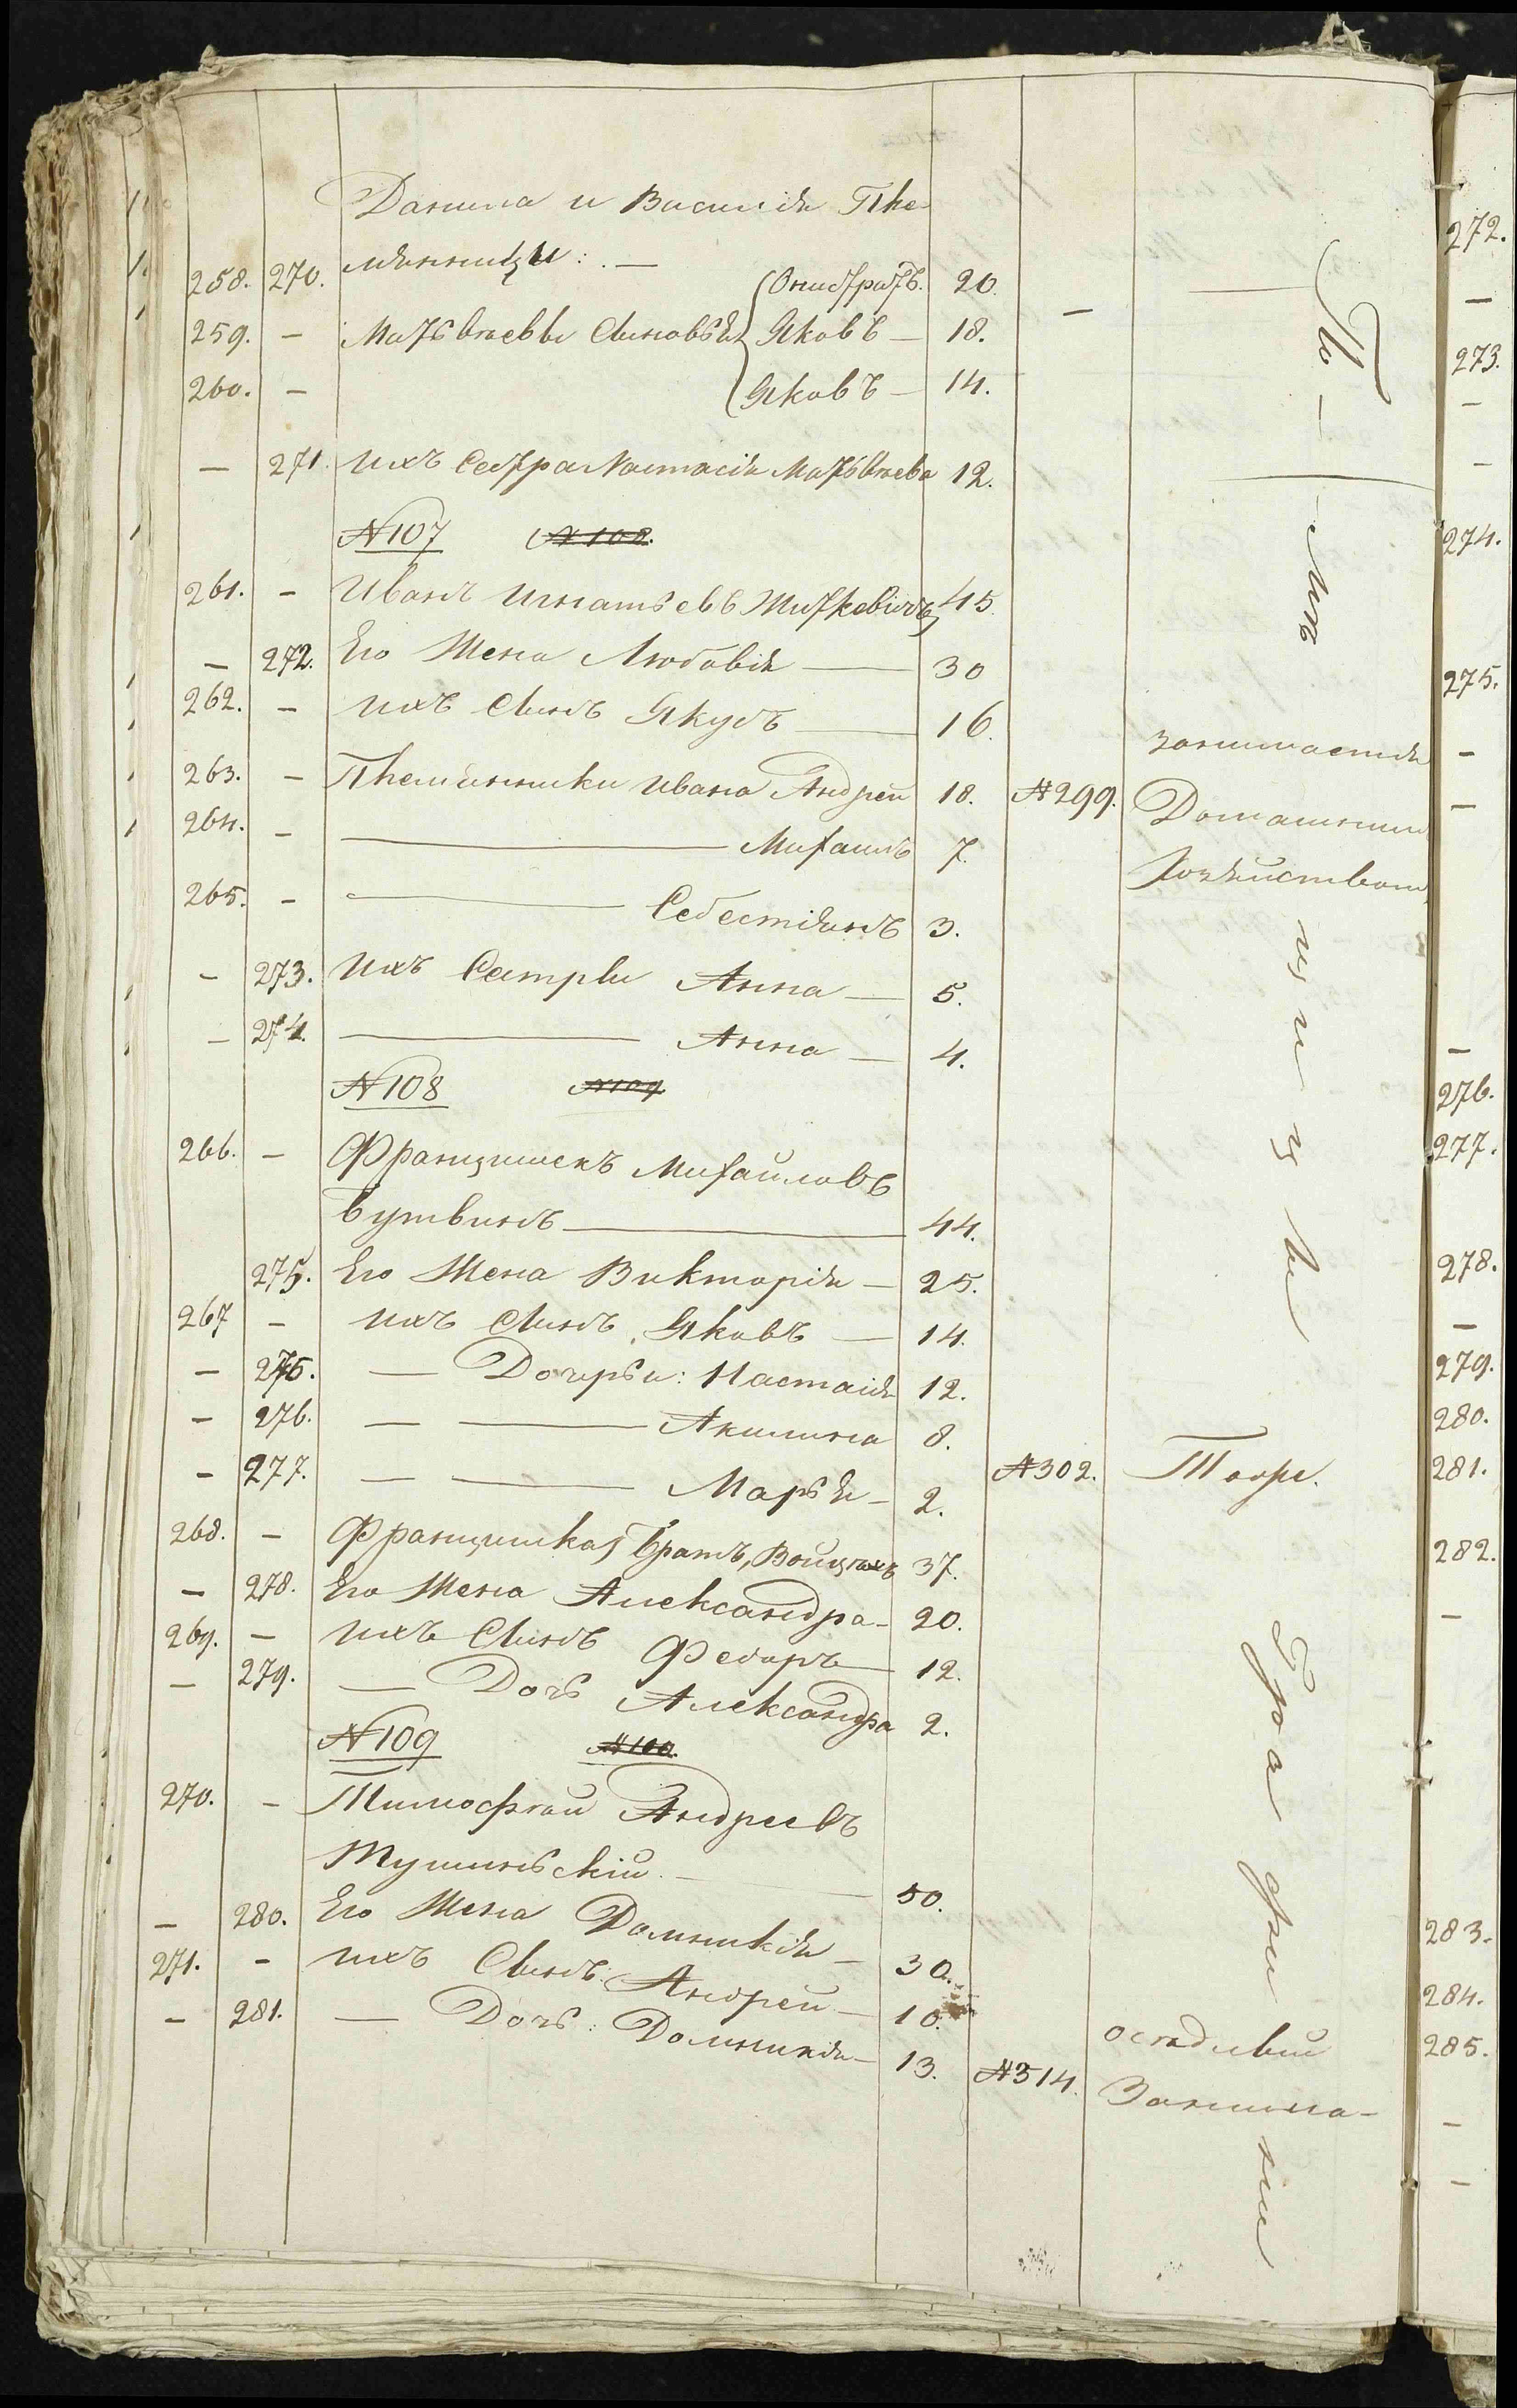 Данила и Василія Пле-
258. 270. мянницы: — Онисфратъ. 20.
259. — Матьвѣевы Сыновья Яковъ — 18.
260. — Яковъ — 14.
— 271. Ихъ Сестра Настасія Матьвѣева 12.
№107 №108.
261. — Иванъ Игнатьевъ Житкевичъ 45.
— 272. Его Жена Любовія — 30
262. — Ихъ Сынъ Якубъ — 16.
занимается
263. — Племянники Ивана Андрей 18. №299. Домашним
264. — Михаилъ 7. хозяйством
265. — Себестіянъ 3.
— 273. Ихъ Сестры Анна — 5.
— 274. Анна — 4.
№108 №109
266. — Францишекъ Михайловъ
Бутвинъ — 44.
275. Его Жена Викторія — 25.
267 — Ихъ Сынъ Яковъ — 14.
— 275. — Дочерьи: Настасія 12.
— 276. — Акилина 8.
— 277. — Марья — 2. №302. Тоже.
268. — Францишка Братъ, Войцѣхъ 37.
— 278. Его Жена Александра — 20.
269. — Ихъ Сынъ Федоръ — 12.
— 279. — Дочь Александра 2.
№109 №100.
270. — Тимофѣй Андреевъ
Тушиньскій. — 50.
— 280. Его Жена Домникія — 30.
271. — Ихъ Сынъ: Андрей — 10.
осѣдлый
— 281. — Дочь: Домникія — 13. №314. Занима-
272.
—
273.
—
—
274.
275.
—
—
—
276.
277.
278.
—
279.
280.
281.
282.
—
283.
284.
285.
—
—